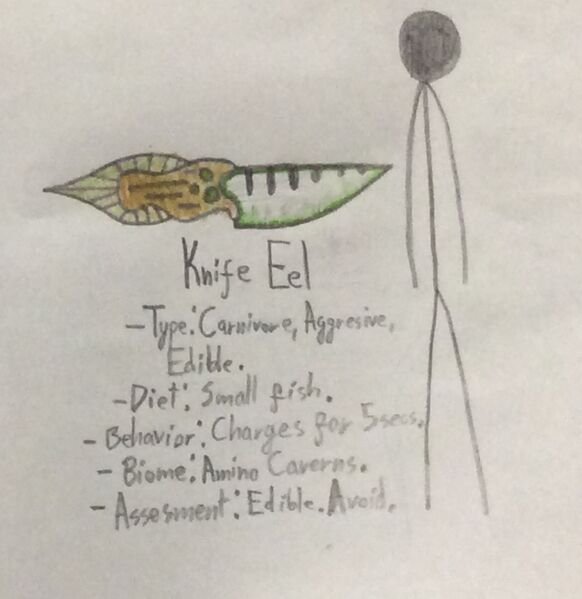 Knife Eel
-Type: Carnivore, Aggresive,
Edible.
-Diet: Small fish.
-Behavior: Charges for 5secs.
-Biome: Amino Caverns.
-Assesment: Edible. Avoid.